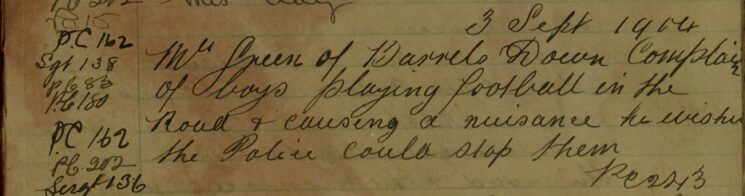 P.C 202
3 Sept 1904
P.C 162
Sgt 138
P.C 83
P.C 180
P.C 162
P.C. 202
Sergt 136
Mr Green of Barrels Down Complain
of boys playing football in the
Road & causing a nuisance he wishes
the Police could stop them
PC 243